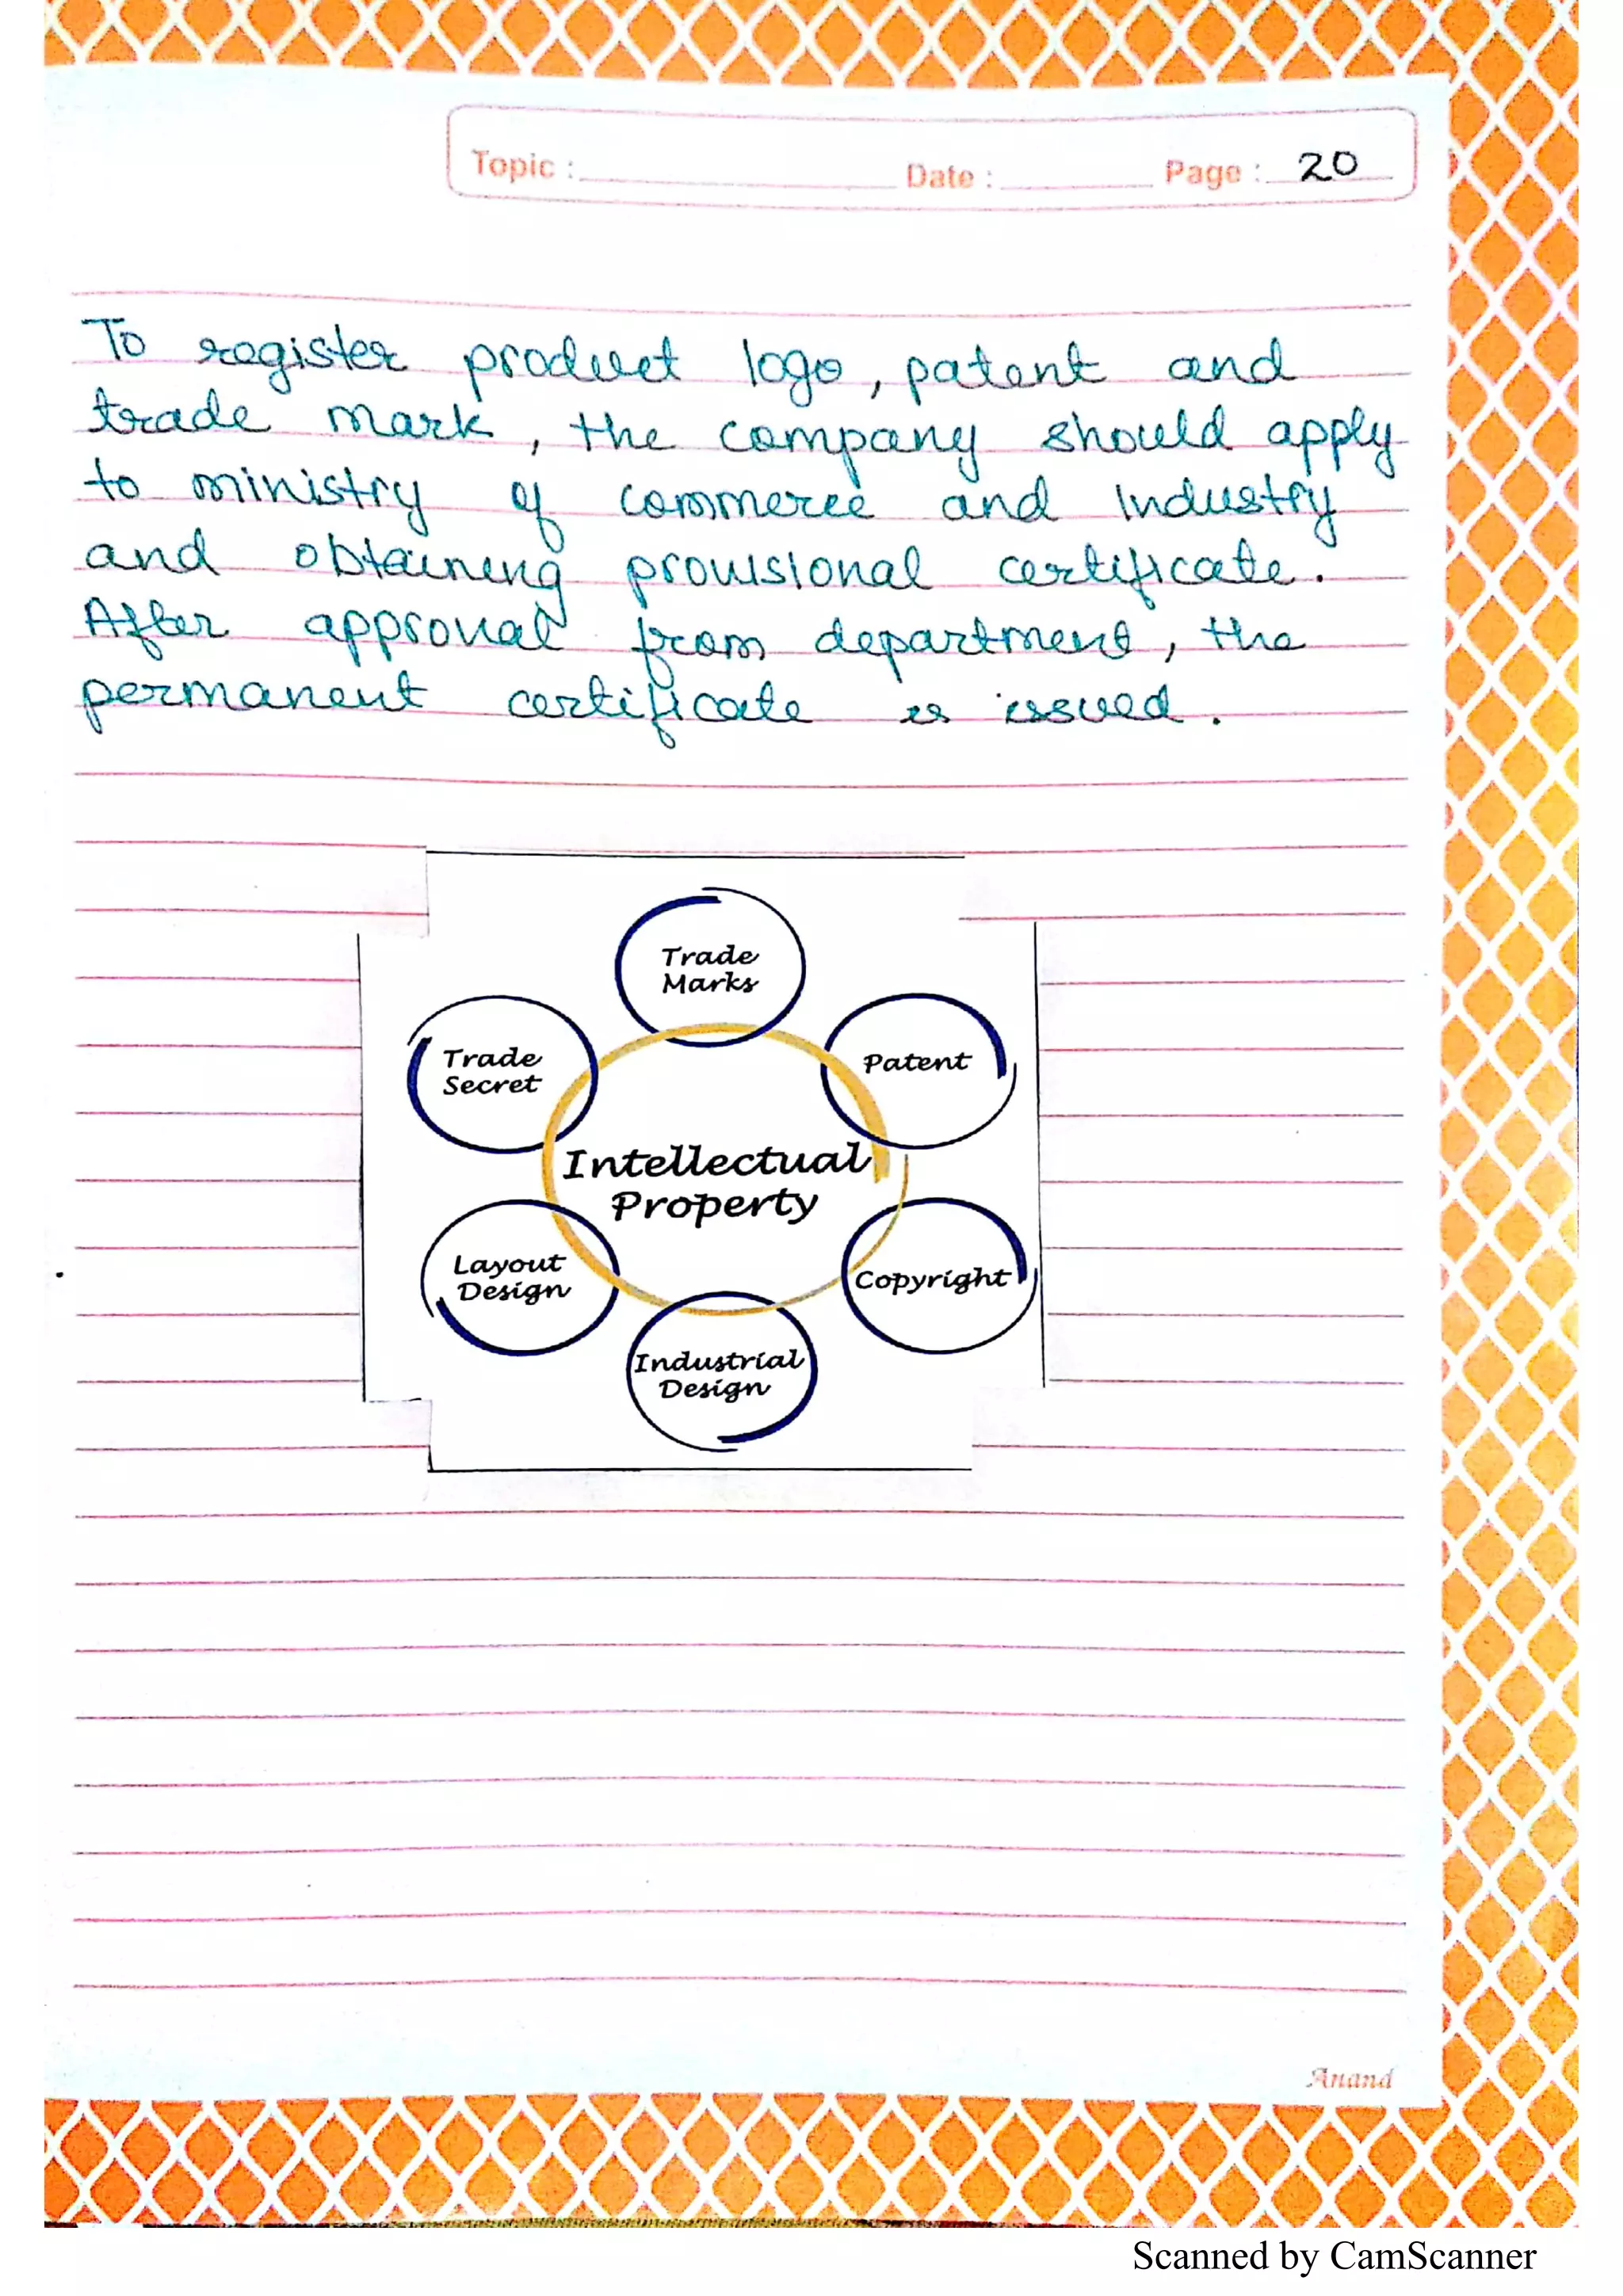 Topic : Date : Page : 20
To register product logo, patent and
trade mark, the company should apply
to ministry of commerce and Industry
and obtaining provisional certificate.
After approval from department, the
permanent certificate is issued.
Trade
Marks
Patent
Trade
Secret
Intellectual
Property
Layout
Design
Copyright
Industrial
Design
Anand
Scanned by CamScanner